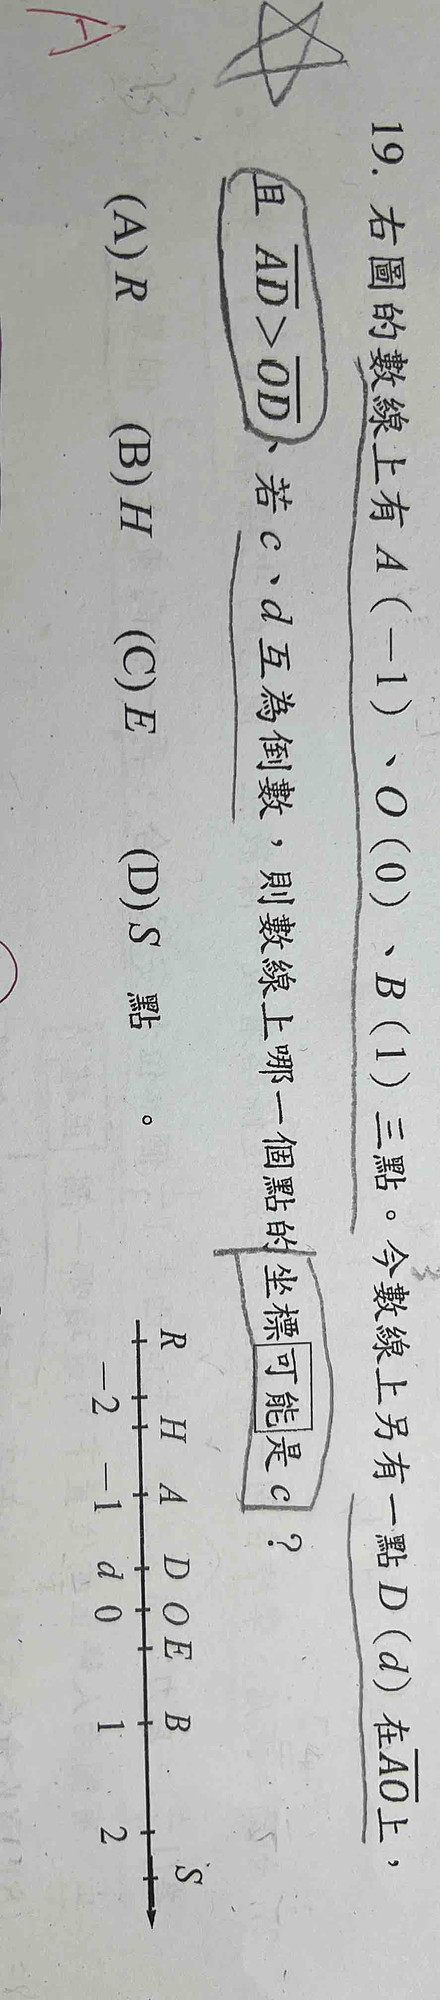 A
19. 右圖的數線上有 A(-1)、O(0)、B(1)三點。今數線上另有一點 D(d)在AO上，
且 AD>OD、若 c、d 互為倒數，則數線上哪一個點的坐標可能是 c？
(A)R (B)H (C)E (D)S 點 。
R H A D O E B S
-2 -1 d 0 1 2